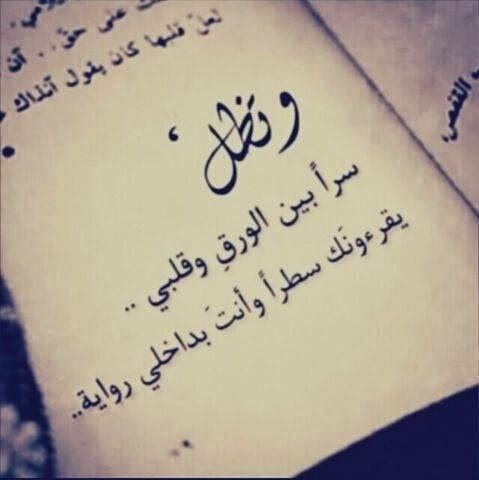 على حق . . آن
لعل قلبها كان يقول آنذاك
وتظل ،
سراً بين الورقِ وقلبي ..
يقرءونَك سطراً وأنتَ بداخلي رواية..
القفص،